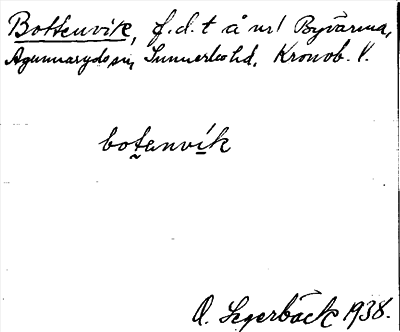 Bottenvik, f.d. t å nr 1 Byvärma,
Agunnaryds sn, Sunnerbo hd, Kronob. l.
botenvik
O. Segerbäck 1938.